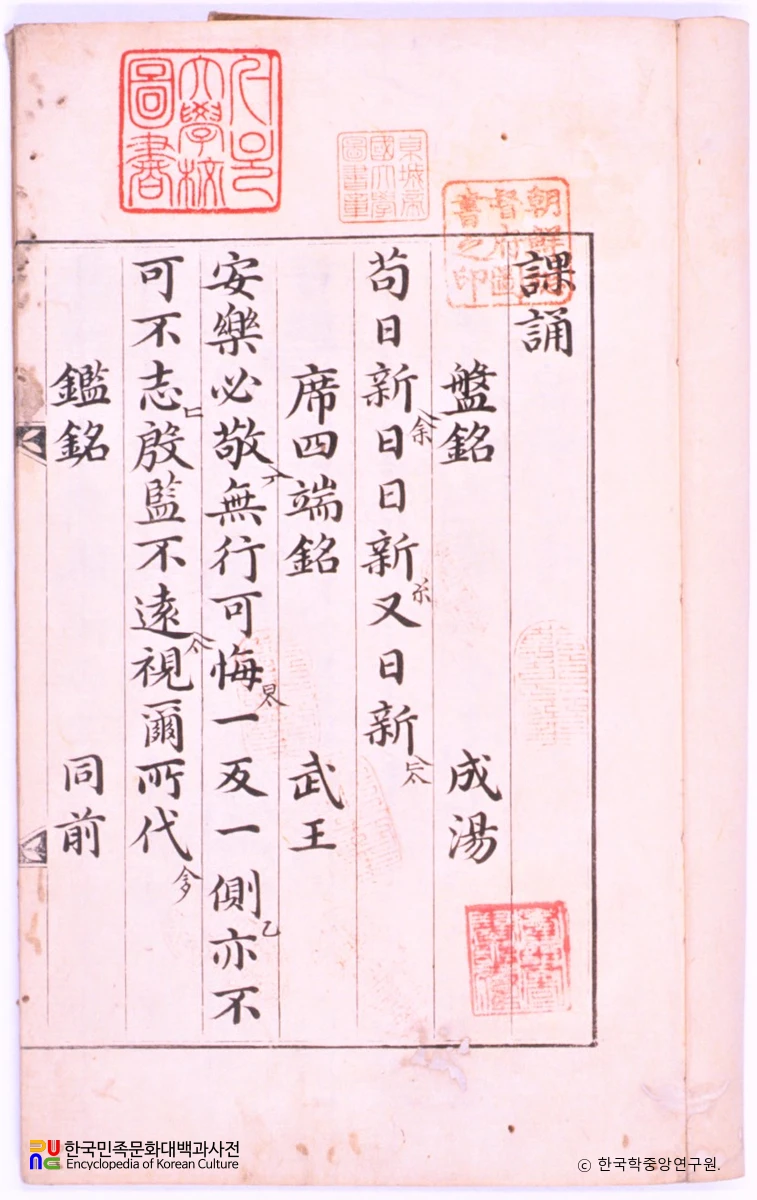 서울大學校圖書
京城帝國大學圖書章
朝鮮總督府圖書之印
課誦
盤銘 成湯
苟日新日日新又日新
席四端銘 武王
安樂必敬無行可悔一反一側亦不
可不志殷監不遠視爾所代
鑑銘 同前
한국민족문화대백과사전
Encyclopedia of Korean Culture
© 한국학중앙연구원.